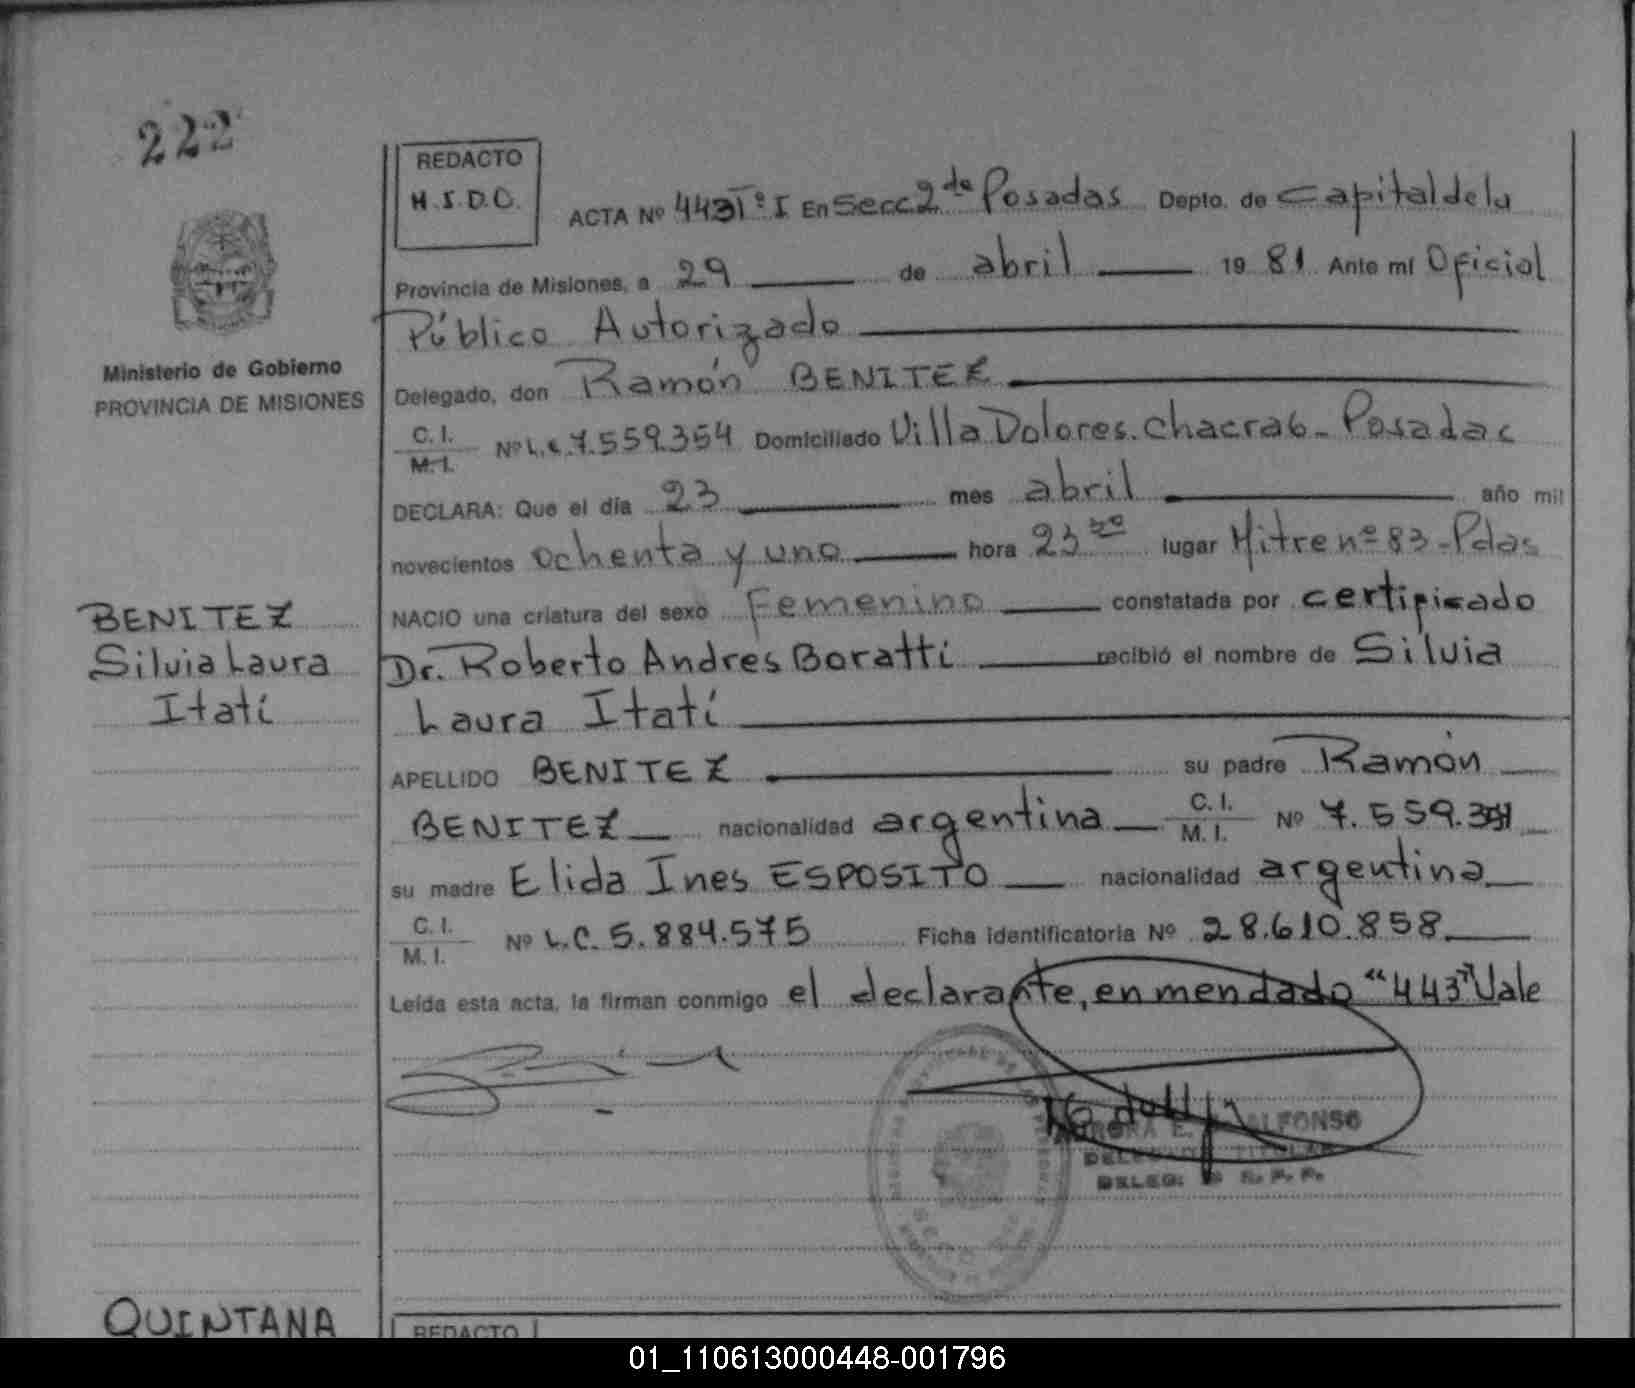 222
REDACTO
H.I.D.O.
ACTA Nº 443 Tº I En Secc 2da Posadas Depto. de Capital de la
Provincia de Misiones, a 29 de abril 1981 Ante mí Oficial
Público Autorizado
Delegado, don Ramón BENITEZ
C. I.
M. I.
Nº L.E. 7.559.354 Domiciliado Villa Dolores. Chacra 6 - Posadas
DECLARA: Que el día 23 mes abril año mil
novecientos ochenta y uno hora 23 30 lugar Mitre nº 83 - Pdas
NACIO una criatura del sexo Femenino constatada por certificado
Dr. Roberto Andres Boratti recibió el nombre de Silvia
Laura Itatí
APELLIDO BENITEZ su padre Ramón
BENITEZ nacionalidad argentina C. I. M. I. Nº 7.559.354
su madre Elida Ines ESPOSITO nacionalidad argentina
C. I.
M. I.
Nº L.C. 5.884.575 Ficha identificatoria Nº 28.610.858
Leída esta acta, la firman conmigo el declarante, enmendado "443" Vale
Ministerio de Gobierno
PROVINCIA DE MISIONES
BENITEZ
Silvia Laura
Itatí
AURORA E. ALFONSO
DELEGADO TITULAR
DELEG.
QUINTANA
REDACTO
01_110613000448-001796